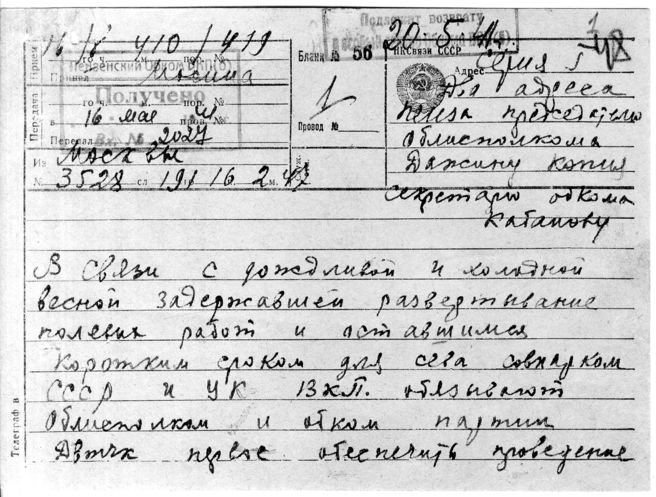 Подлежит возврату
20 5
Серия Г
16
410/419
Прием
то ч. м. пор. №
Пензенский Обком ВКП(б)
Принял Мосина
Бланк № 56
НКСвязи СССР
Адрес
Два адреса
Пенза председателю
Облисполкома
Дажину копия
секретарю обкома
Кабанову
Передача
то ч. пор. №
Получено
в. 16 мая пров. №
Передал
Вх. № 2027
1
Провод №
Из Москвы
№ 3528 сл 191 16 2 м. 47
В связи с дождливой и холодной
весной задержавшей развертывание
полевых работ и оставшимся
коротким сроком для сева совнарком
СССР и ЦК ВКП. обязывают
Облисполком и обком партии
Двтчк первое обеспечить проведение
Телеграф в